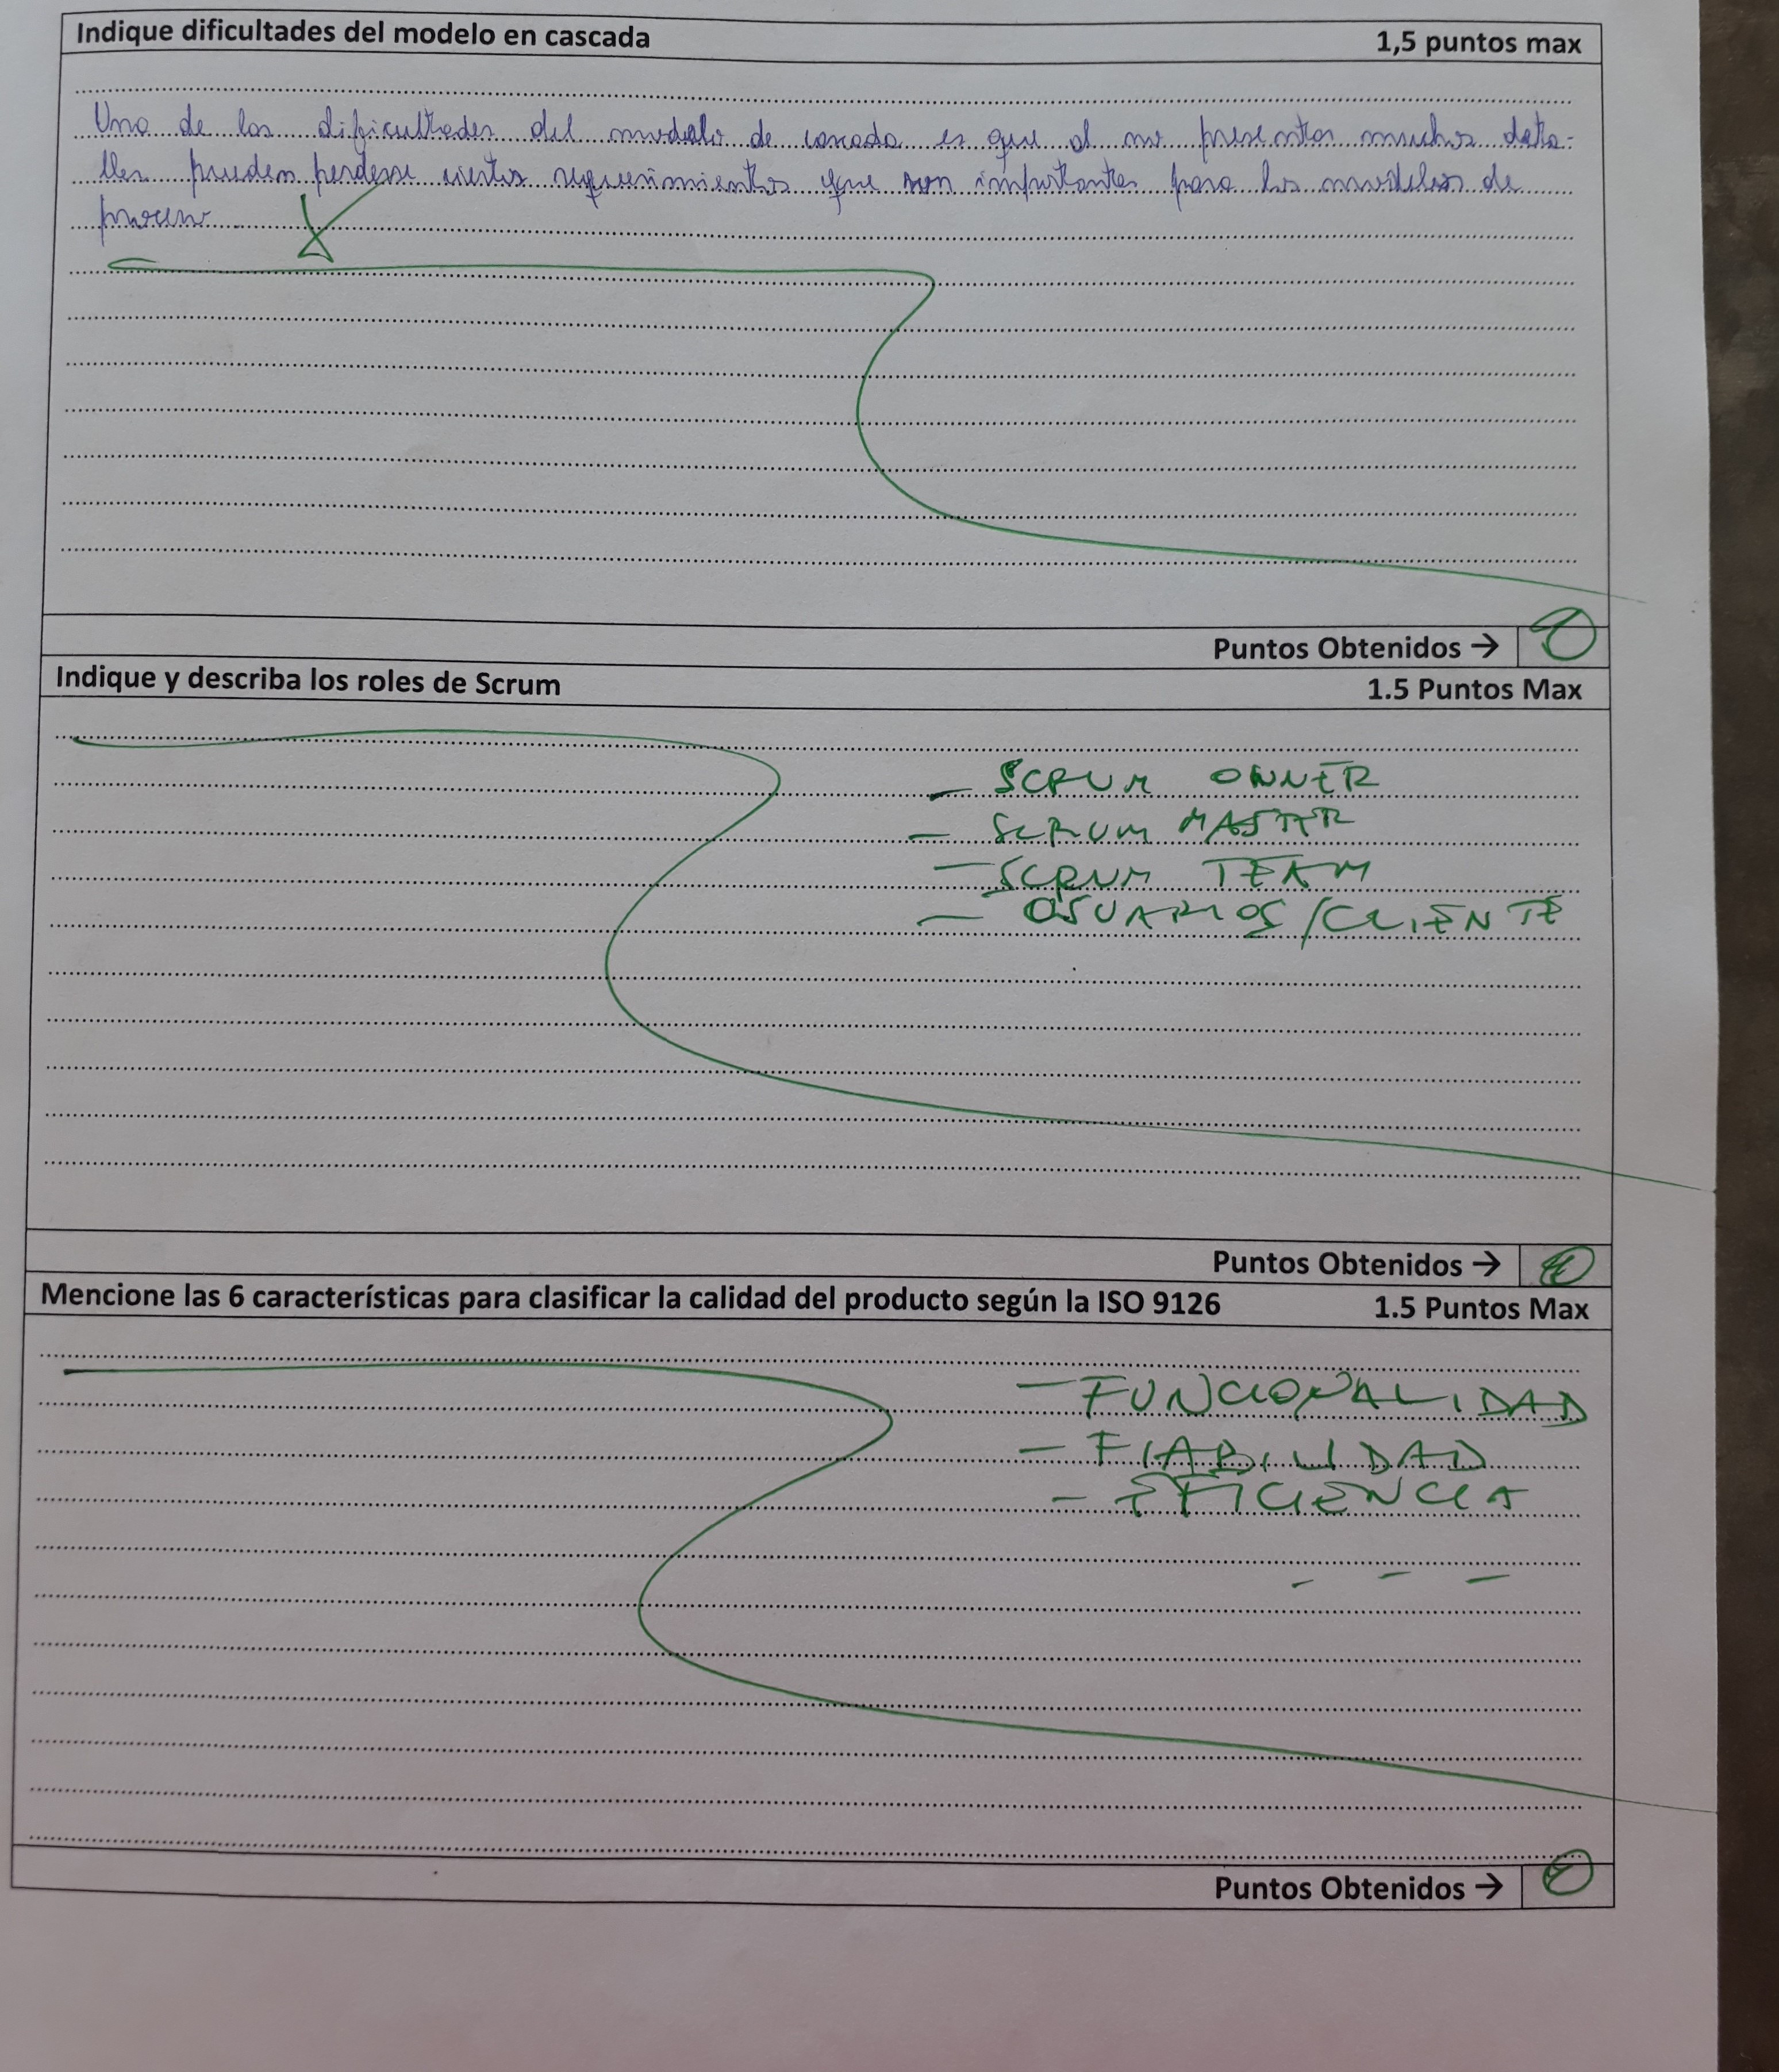 Indique dificultades del modelo en cascada 1,5 puntos max
Una de las dificultades del modelo de cascada es que al no presentar muchos deta-
lles pueden perderse ciertos requerimientos que son importantes para los modelos de
proceso.
Puntos Obtenidos → 0
Indique y describa los roles de Scrum 1.5 Puntos Max
- SCRUM OWNER
- SCRUM MASTER
- SCRUM TEAM
- USUARIOS/CLIENTE
Puntos Obtenidos → 0
Mencione las 6 características para clasificar la calidad del producto según la ISO 9126 1.5 Puntos Max
- FUNCIONALIDAD
- FIABILIDAD
- EFICIENCIA
- - -
Puntos Obtenidos → 0